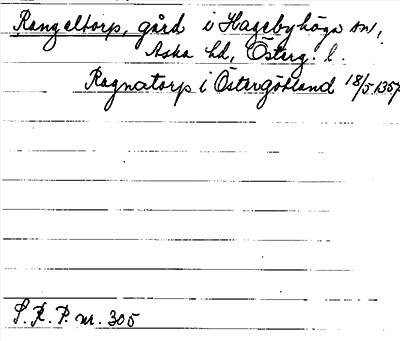 Rangeltorp, gård i Hagebyhöga sn,
Aska hd, Österg. l.
Ragnatorp i Östergötland 18/5 1357
S.R.P. nr. 305